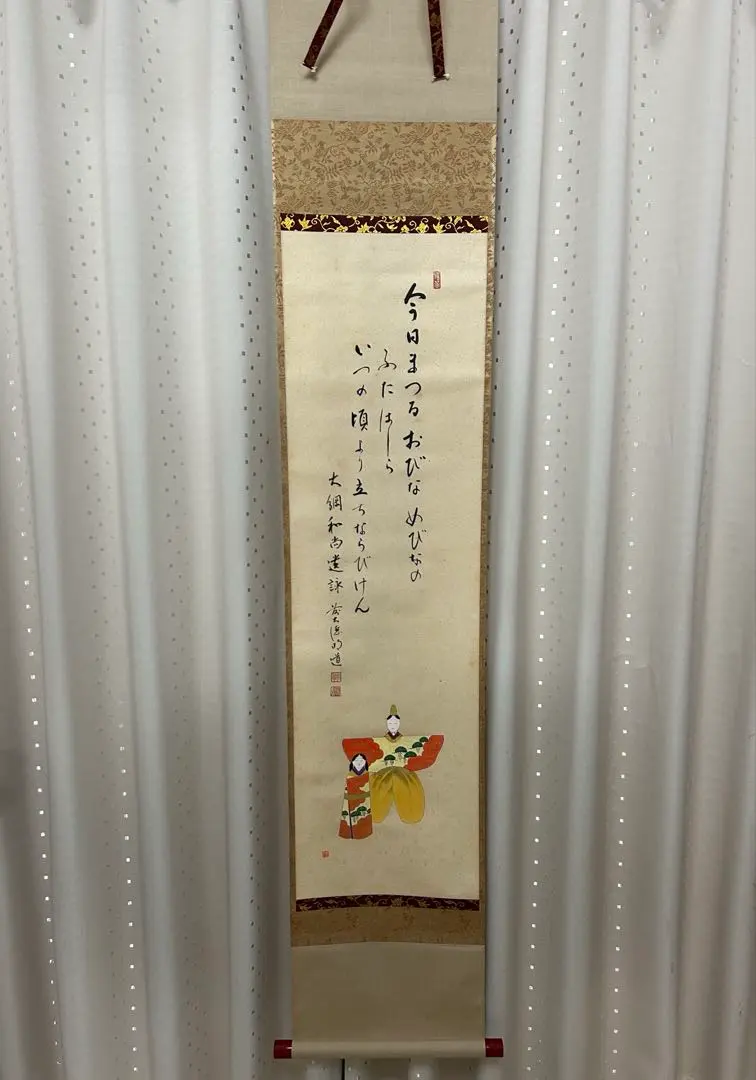 今日まつるおびなめびなの
ふたはしら
いつの頃より立ちならびけん
大綱和尚遺詠
明道